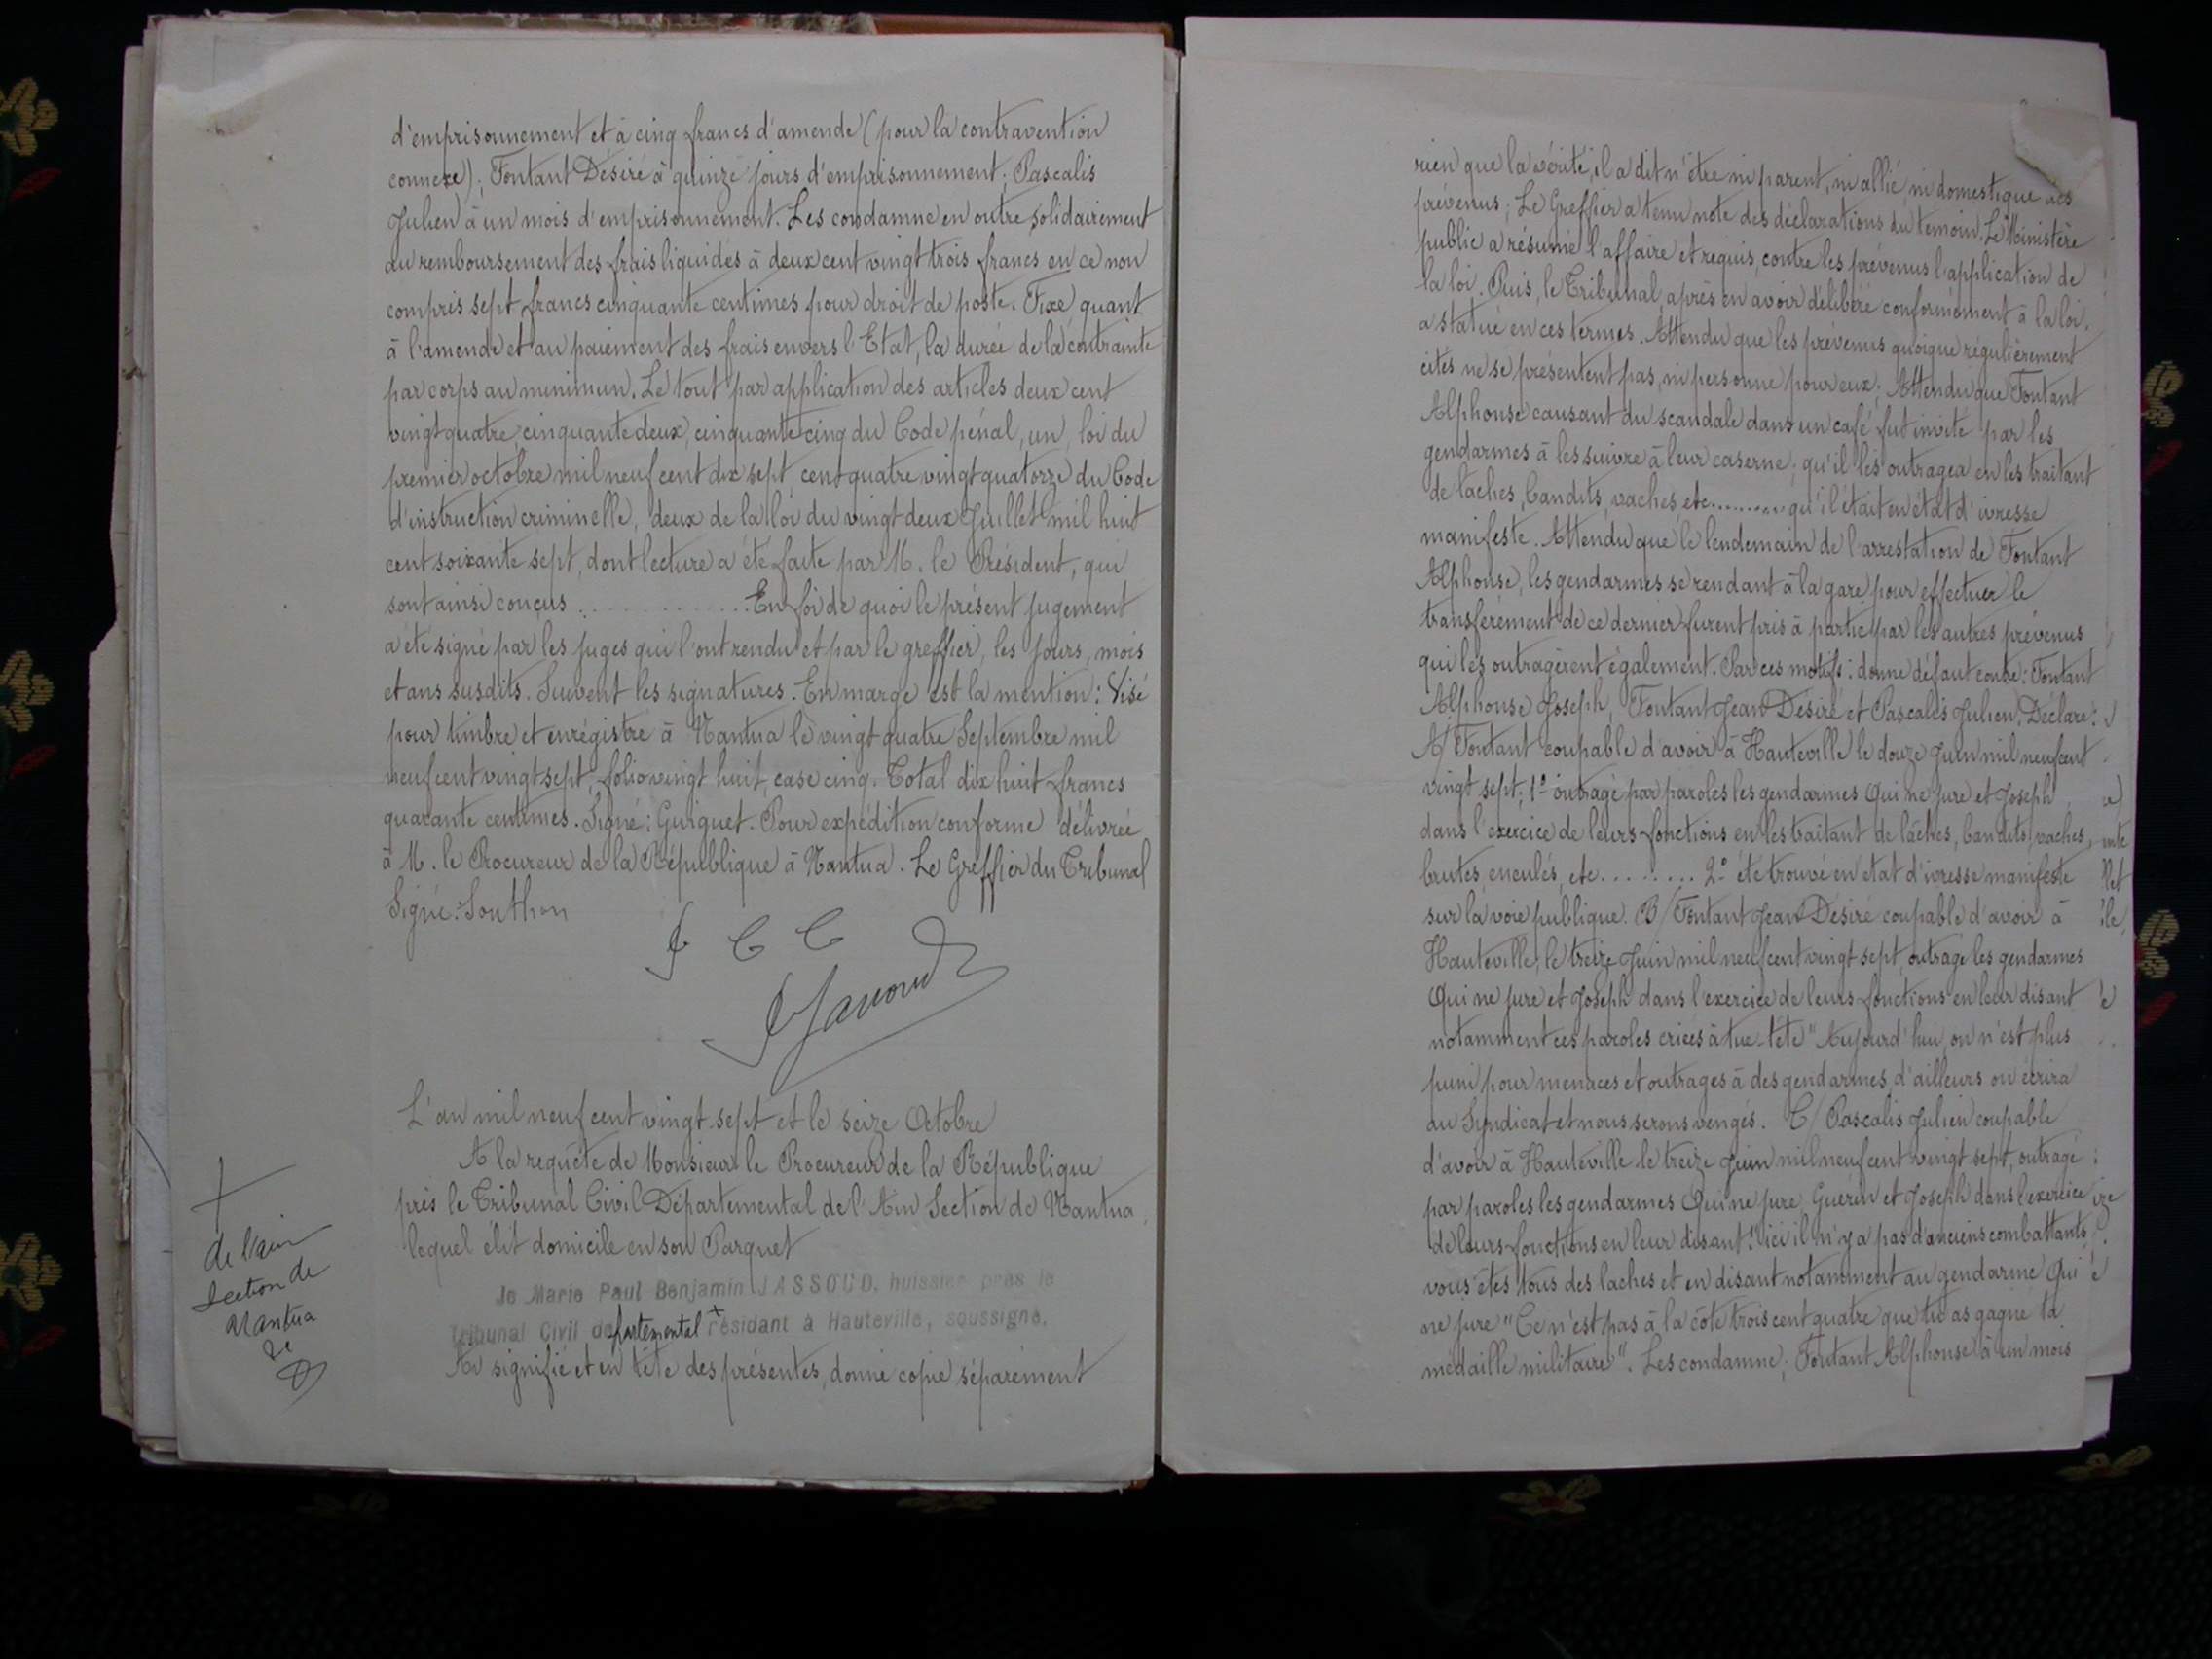 d'emprisonnement et à cinq francs d'amende (pour la contravention
connexe); Fontant Désiré à quinze jours d'emprisonnement; Pascalis
Julien à un mois d'emprisonnement. Les condamne en outre solidairement
au remboursement des frais liquidés à deux cent vingt trois francs en ce non
compris sept francs cinquante centimes pour droit de poste. Fixe quant
à l'amende et au paiement des frais envers l'Etat, la durée de la contrainte
par corps au minimun. Le tout par application des articles deux cent
vingt quatre, cinquante deux, cinquante cinq du Code pénal, un, loi du
premier octobre mil neuf cent dix sept, cent quatre vingt quatorze du Code
d'instruction criminelle, deux de la loi du vingt deux Juillet mil huit
cent soixante sept, dont lecture a été faite par M. le Président, qui
sont ainsi conçus .............. En foi de quoi le présent jugement
a été signé par les juges qui l'ont rendu et par le greffier, les jours, mois
et ans susdits. Suivent les signatures. En marge est la mention: Visé
pour timbre et enrégistré à Nantua le vingt quatre Septembre mil
neuf cent vingt sept, folio vingt huit, case cinq. Total dix huit francs
quarante centimes. Signé: Guiguet. Pour expédition conforme délivrée
à M. le Procureur de la République à Nantua. Le Greffier du Tribunal
Signé: Southon
P C C
L'an mil neuf cent vingt sept et le seize Octobre
A la requête de Monsieur le Procureur de la République
près le Tribunal Civil Départemental de l'Ain Section de Nantua,
lequel élit domicile en son Parquet
Je Marie Paul Benjamin JASSOUD, huissier près le
Tribunal Civil départemental + résidant à Hauteville, soussigné.
Ai signifié et en tête des présentes, donné copie séparément
+
de l'ain
Section de
Nantua
rien que la vérité, il a dit n'être ni parent, ni allié, ni domestique des
prévenus; Le Greffier a tenu note des déclarations du témoin. Le Ministère
public a résumé l'affaire et requis, contre les prévenus l'application de
la loi. Puis, le Tribunal après en avoir délibéré conformément à la loi,
a statué en ces termes. Attendu que les prévenus quoique régulièrement
cités ne se présentent pas, ni personne pour eux; Attendu que Fontant
Alphonse causant du scandale dans un café fut invité par les
gendarmes à les suivre à leur caserne; qu'il les outragea en les traitant
de laches, bandits, vaches etc......... qu'il était en état d'ivresse
manifeste. Attendu que le lendemain de l'arrestation de Fontant
Alphonse, les gendarmes se rendant à la gare pour effectuer le
transfèrement de ce dernier furent pris à partie par les autres prévenus
qui les outragèrent également. Par ces motifs: donne défaut contre: Fontant
Alphonse Joseph, Fontant Jean Désiré et Pascalis Julien. Déclare:
A/ Fontant coupable d'avoir à Hauteville le douze Juin mil neuf cent
vingt sept, 1° outragé par paroles les gendarmes Qui ne jure et Joseph
dans l'exercice de leurs fonctions en les traitant de lâches, bandits, vaches,
brutes, enculés, etc......... 2° été trouvé en état d'ivresse manifeste
sur la voie publique. B/ Fontant Jean Désiré coupable d'avoir à
Hauteville, le treize Juin mil neuf cent vingt sept, outragé les gendarmes
Qui ne jure et Joseph dans l'exercice de leurs fonctions en leur disant
notamment ces paroles criées à tue-tête "Aujourd'hui, on n'est plus
puni pour menaces et outrages à des gendarmes, d'ailleurs on écrira
au Syndicat et nous serons vengés. C/ Pascalis Julien coupable
d'avoir à Hauteville le treize Juin mil neuf cent vingt sept, outragé
par paroles les gendarmes Qui ne jure, Guérin et Joseph dans l'exercice
de leurs fonctions en leur disant "ici il n'y a pas d'anciens combattants,
vous êtes tous des laches et en disant notamment au gendarme Qui
ne jure "Ce n'est pas à la côte trois cent quatre que tu as gagné ta
médaille militaire". Les condamne; Fontant Alphonse à un mois